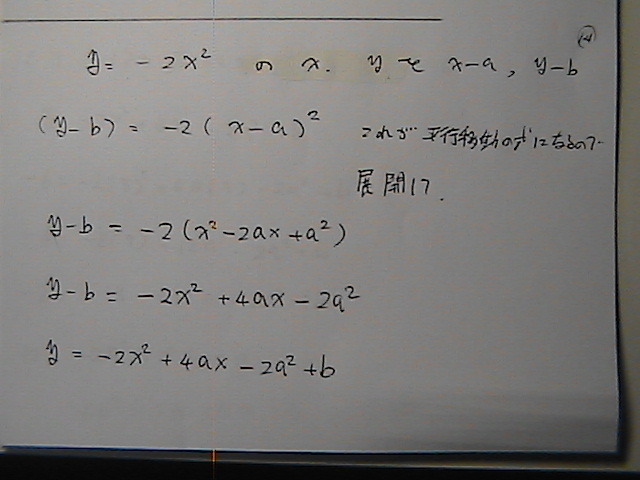 y = -2x² の x. y を x-a, y-b
(y-b) = -2(x-a)² これが 平行移動の式になるので
展開して.
y-b = -2(x²-2ax+a²)
y-b = -2x²+4ax-2a²
y = -2x²+4ax-2a²+b